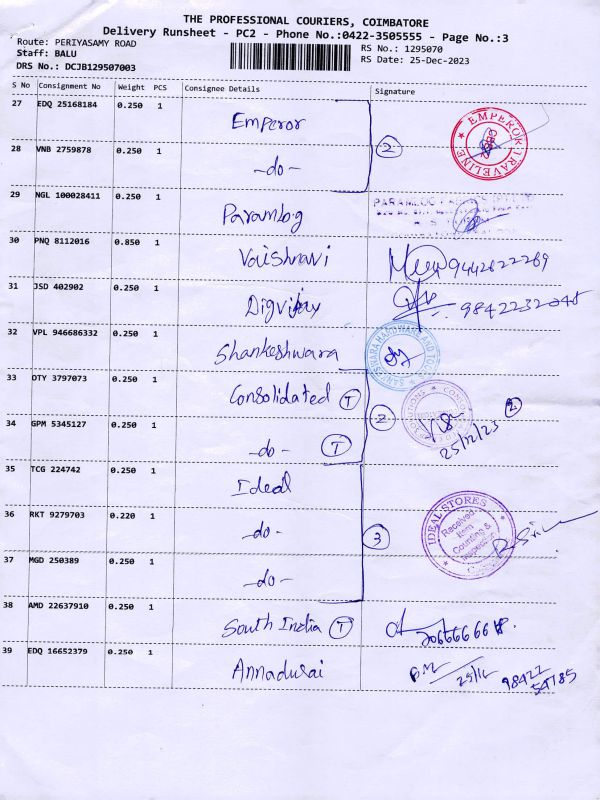 THE PROFESSIONAL COURIERS, COIMBATORE
Delivery Runsheet - PC2 - Phone No.:0422-3505555 - Page No.:3
Route: PERIYASAMY ROAD
RS No.: 1295070
Staff: BALU
RS Date: 25-Dec-2023
DRS No.: DCJB129507003
S No Consignment No Weight PCS Consignee Details Signature
27 EDQ 25168184 0.250 1 Emperor
EMPEROR TRAVELINE
28 VNB 2759878 0.250 1 -do- 2
29 NGL 100028411 0.250 1 Paramlog
30 PNQ 8112016 0.850 1 Vaishnavi 9442822289
31 JSD 402902 0.250 1 Digvijay 9842232045
32 VPL 946686332 0.250 1 Shankeshwara
HARDWARE AND TOOLS
33 OTY 3797073 0.250 1 Consolidated T
2
34 GPM 5345127 0.250 1 -do- T
25/12/23 2
35 TCG 224742 0.250 1 Ideal
IDEAL STORES
Received
Item
Counting &
Inspection
36 RKT 9279703 0.220 1 -do- 3
37 MGD 250389 0.250 1 -do-
38 AMD 22637910 0.250 1 South India T
39 EDQ 16652379 0.250 1 Annadurai
25/12
98422
54785